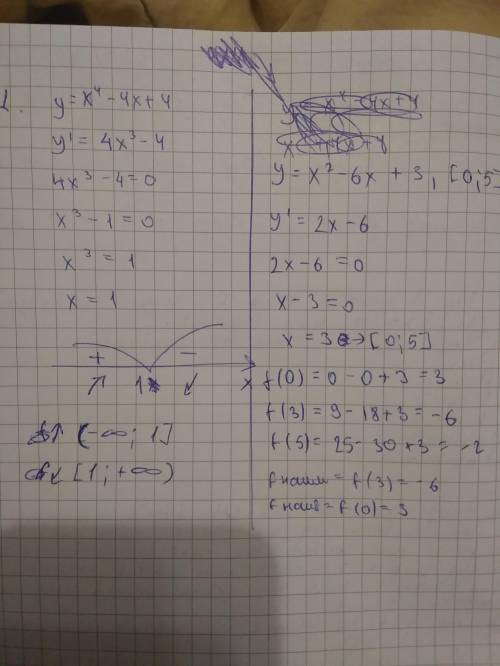 1.
y = x⁴ - 4x + 4
y' = 4x³ - 4
4x³ - 4 = 0
x³ - 1 = 0
x³ = 1
x = 1
+ -
↗ 1 ↙ x
f↑ (-∞; 1]
f↙ [1; +∞)
y = x² - 6x + 3, [0;5]
y' = 2x - 6
2x - 6 = 0
x - 3 = 0
x = 3 → [0;5]
f(0) = 0 - 0 + 3 = 3
f(3) = 9 - 18 + 3 = -6
f(5) = 25 - 30 + 3 = -2
f наим = f(3) = -6
f наиб = f(0) = 3